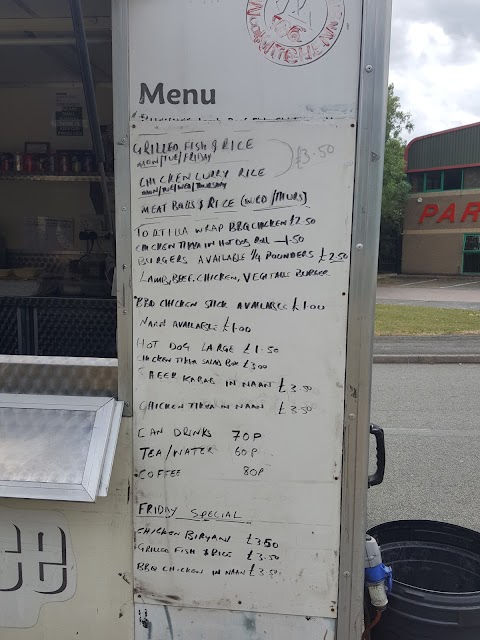 Menu
GRILLED FISH & RICE
MON/TUE/FRIDAY
£3.50
CHICKEN CURRY RICE
MON/TUE/WED/THURSDAY
MEAT BALLS & RICE (WED/THURS)
TORTILLA WRAP BBQ CHICKEN £2.50
CHICKEN TIKKA IN HOT DOG ROLL — 1.50
BURGERS AVAILABLE 1/4 POUNDERS £2.50
LAMB, BEEF, CHICKEN, VEGETABLE BURGER
BBQ CHICKEN STICK AVAILABLE £1.00
NAAN AVAILABLE £1.00
HOT DOG LARGE £1.50
CHICKEN TIKKA SALAD BOX £3.00
SHEEK KABAB IN NAAN £3.50
CHICKEN TIKKA IN NAAN £3.50
CAN DRINKS 70P
TEA/WATER 60P
COFFEE 80P
FRIDAY SPECIAL
CHICKEN BIRYANI £3.50
GRILLED FISH & RICE £3.50
BBQ CHICKEN IN NAAN £3.50
PAR
ee